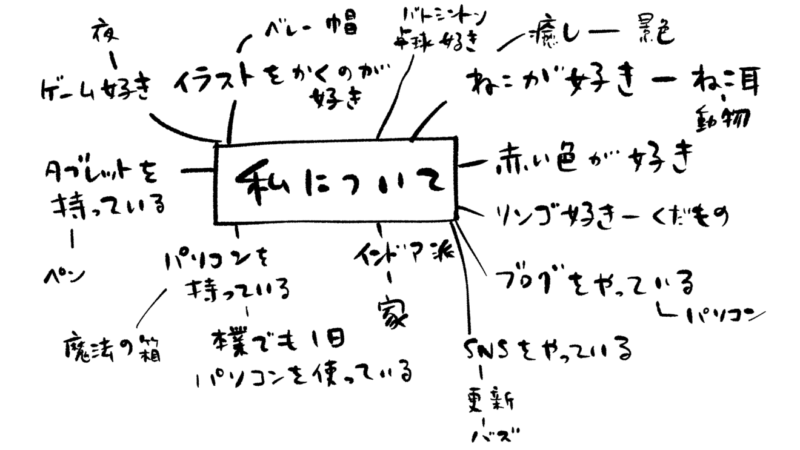 夜
ゲーム好き
ベレー帽
イラストをかくのが
好き
バトミントン
卓球好き
癒し
景色
ねこが好き
ねこ耳
動物
私について
タブレットを
持っている
ペン
赤い色が好き
リンゴ好き
くだもの
パソコンを
持っている
魔法の箱
本業でも1日
パソコンを使っている
インドア派
家
ブログをやっている
パソコン
SNSをやっている
更新
バズ